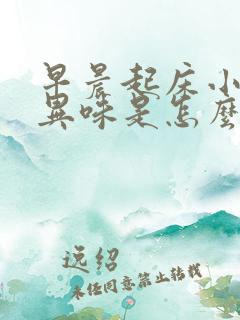 早晨起床小
异味是怎麼
逸绍
未经同意禁止转载